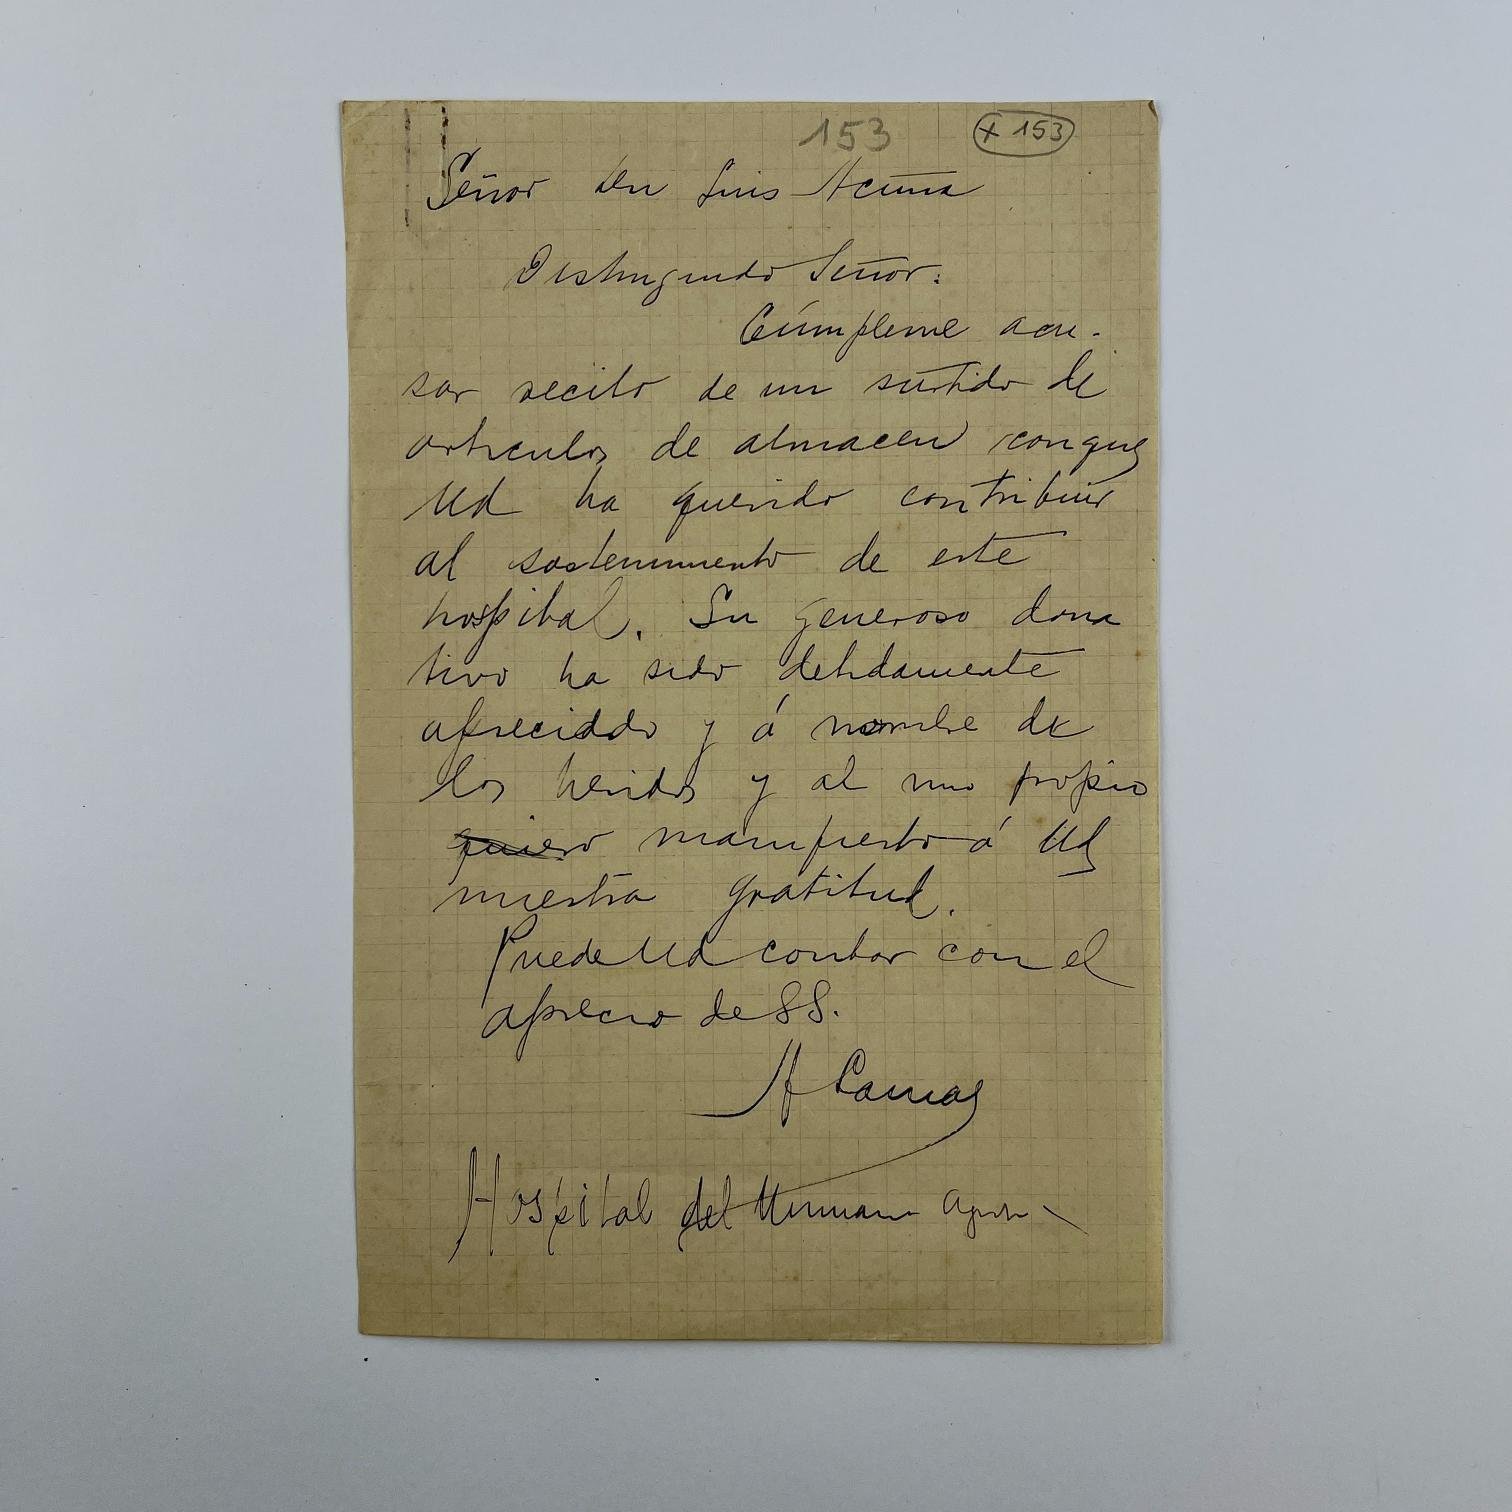 153 x 153
Señor Don Luis Acuña
Distinguido Señor:
Cúmpleme acu-
sar recibo de un surtido de
articulos de almacen con que
Ud ha querido contribuir
al sostenimiento de este
hospital. Su generoso dona
tivo ha sido debidamente
apreciddo y á nombre de
los heridos y al mio propio
quiero manifiesto á Ud
nuestra gratitud.
Puede Ud contar con el
aprecio de SS.
Hospital del